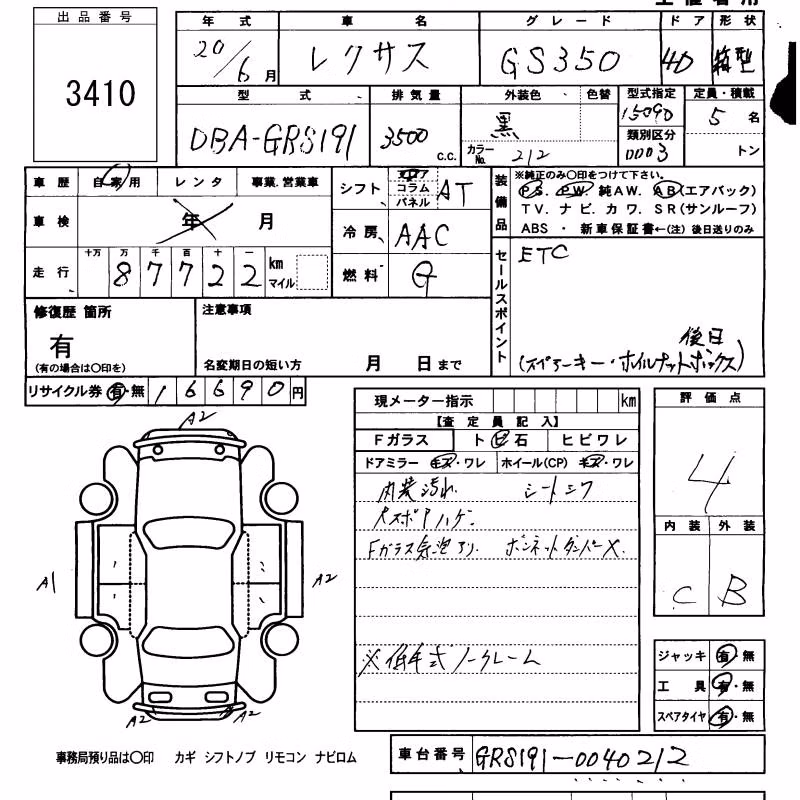 出品番号
3410
年式 車名 グレード ドア 形状
20/6月 レクサス GS350 4D 箱型
型式 排気量 外装色 色替 型式指定 定員・積載
DBA-GRS191 3500 c.c. 黒 15090 5名
カラーNo. 212 類別区分 0003 トン
車歴 自家用 レンタ 事業.営業車
車検 年 月
走行 十万 万 千 百 十 一 km マイル
87722
シフト フロア コラム パネル AT
冷房 AAC
燃料 G
装備品
※純正のみ〇印をつけて下さい。
P.S. P.W. 純AW. AB(エアバック)
TV. ナビ. カワ. SR(サンルーフ)
ABS ・ 新車保証書←(注) 後日送りのみ
セールスポイント
ETC
後日
(スペアーキー・ホイルナットボックス)
修復歴 箇所
有
(有の場合は〇印を)
注意事項
名変期日の短い方 月 日まで
リサイクル券 有・無 16690円
現メーター指示 km
【査定員記入】
Fガラス ト ビ 石 ヒビワレ
ドアミラー キズ・ワレ ホイール(CP) キズ・ワレ
内装汚れ シートシワ
Fガラス気泡アリ. ボンネットダンパーX.
※低年式ノークレーム
評価点
4
内装 外装
C B
A2
A1
A2
A2
A2
ジャッキ 有・無
工具 有・無
スペアタイヤ 有・無
事務局預り品は〇印 カギ シフトノブ リモコン ナビロム
車台番号 GRS191-0040212